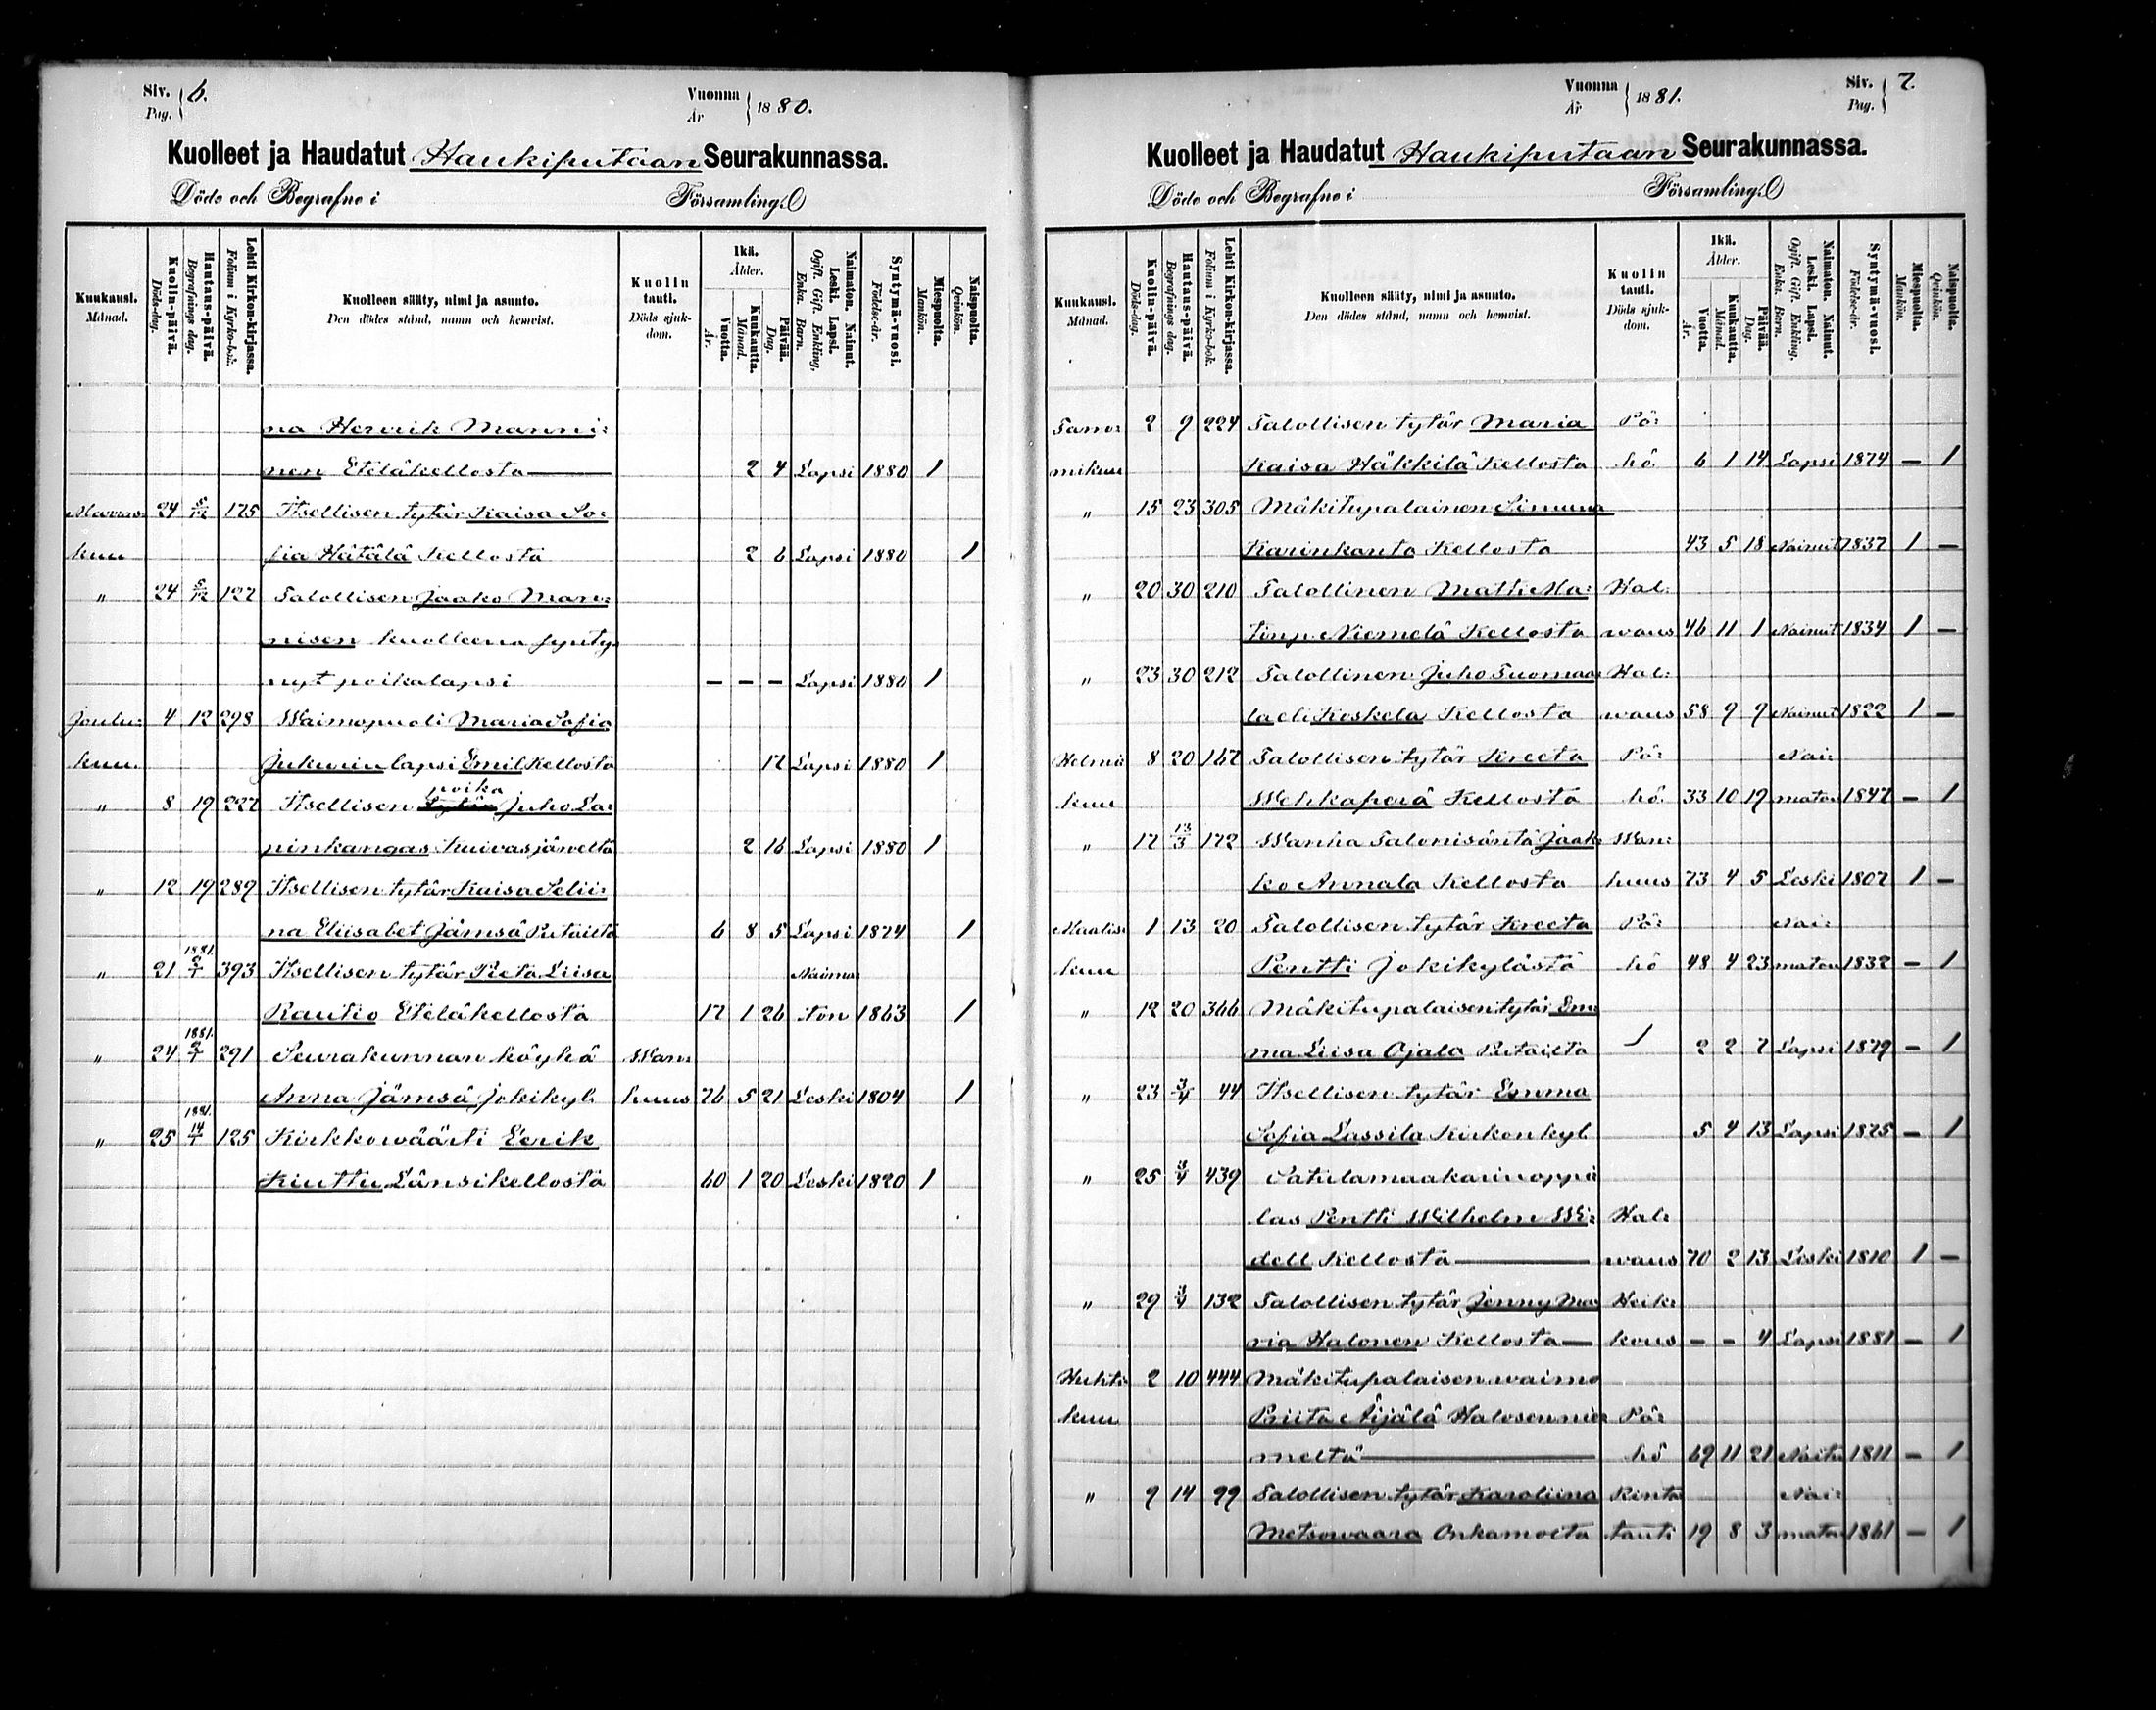 Siv. Pag. 6.
Vuonna År 1880.
Kuolleet ja Haudatut Haukiputaan Seurakunnassa.
Döde och Begrafne i Församling.
Kuukausi. Månad. Kuolin-päivä. Döds-dag. Hautaus-päivä. Begrafnings dag. Lehti Kirkon-kirjassa. Folium i Kyrko-bok. Kuolleen sääty, nimi ja asunto. Den dödes stånd, namn och hemvist. Kuolin tauti. Döds sjuk-dom. Ikä. Ålder. Vuotta. År. Kuukautta. Månad. Päivää. Dag. Naimaton. Nainut. Leski. Lapsi. Ogift. Gift. Enkling. Enka. Barn. Syntymä-vuosi. Födelse-år. Miespuolta. Mankön. Naispuolta. Qvinkön.
na Henrik Manni:
nen Eteläkellosta — 2 4 Lapsi 1880 1
Marras: 24 5/12 175 Itsellisen tytär Kaisa So:
kuu fia Hätälä Kellosta 2 6 Lapsi 1880 1
" 24 5/12 127 Talollisen Jaako Man:
nisen kuolleena synty:
nyt poikalapsi — — — Lapsi 1880 1
Joulu: 4 12 298 Waimopuoli Maria Sofia
kuu. Jukurin lapsi Emil Kellosta 17 Lapsi 1880 1
" 8 19 227 Itsellisen poika Juho La:
ninkangas Kuivasjärveltä 2 16 Lapsi 1880 1
" 12 19 289 Itsellisen tytär Kaisa Selii:
na Eliisabet Jämsä Putailta 6 8 5 Lapsi 1874 1
" 21 1881. 2/1 393 Itsellisen tytär Reeta Liisa Naima
Rautio Eteläkellosta 17 1 26 ton 1863 1
" 24 1881. 2/1 291 Seurakunnan köyhä Wan:
Anna Jämsä Jokikyl. huus 76 5 21 Leski 1804 1
" 25 1881. 14/1 125 Kirkkowäärti Eerik
Kiuttu Länsikellosta 60 1 20 Leski 1820 1
Vuonna År 1881.
Siv. Pag. 7.
Kuolleet ja Haudatut Haukiputaan Seurakunnassa.
Döde och Begrafne i Församling.
Kuukausi. Månad. Kuolin-päivä. Döds-dag. Hautaus-päivä. Begrafnings dag. Lehti Kirkon-kirjassa. Folium i Kyrko-bok. Kuolleen sääty, nimi ja asunto. Den dödes stånd, namn och hemvist. Kuolin tauti. Döds sjuk-dom. Ikä. Ålder. Vuotta. År. Kuukautta. Månad. Päivää. Dag. Naimaton. Nainut. Leski. Lapsi. Ogift. Gift. Enkling. Enka. Barn. Syntymä-vuosi. Födelse-år. Miespuolta. Mankön. Naispuolta. Qvinkön.
Tam: 2 9 224 Talollisen tytär Maria Pö:
mikuu Kaisa Häkkilä Kellosta hö 6 1 14 Lapsi 1874 — 1
" 15 23 305 Mäkitupalainen Simuna
Karinkanta Kellosta 43 5 18 Nainut 1837 1 —
" 20 30 210 Talollinen Matti Ma: Hal:
tinp. Niemelä Kellosta waus 46 11 1 Nainut 1834 1 —
" 23 30 212 Talollinen Juho Tuomaa: Hal:
la eli Koskela Kellosta waus 58 9 9 Nainut 1822 1 —
Helmi: 8 20 167 Talollisen tytär Kreeta Pö: Nai:
kuu Wehkaperä Kellosta hö. 33 10 19 maton 1847 — 1
" 17 13/3 172 Wanha Talonisäntä Jaak: Wan:
ko Annala Kellosta huus 73 4 5 Leski 1807 1 —
Maalis: 1 13 20 Talollisen tytär Kreeta Pö: Nai:
kuu Pentti Jokikylästä hö 48 4 23 maton 1832 — 1
" 12 20 366 Mäkitupalaisen tytär Em:
ma Liisa Ojala Putailta 2 2 7 Lapsi 1879 — 1
" 23 3/4 44 Itsellisen tytär Emma
Sofia Lassila Kirkonkyl. 5 4 13 Lapsi 1875 — 1
" 25 3/4 439 Satulamaakarinoppi:
las Pentti Wilhelm Wi: Hal:
dell Kellosta — waus 70 2 13 Leski 1810 1 —
" 29 3/4 132 Talollisen tytär Jenny Ma: Heik:
ria Halonen Kellosta — kous — — 4 Lapsi 1881 — 1
Huhti: 2 10 444 Mäkitupalaisen waimo
kuu Priita Äijälä Halosennie: Pö:
meltä — hö 69 11 21 Naitu 1811 — 1
" 9 14 99 Talollisen tytär Karoliina Rinta Nai:
Metsowaara Onkamosta tauti 19 8 3 maton 1861 — 1